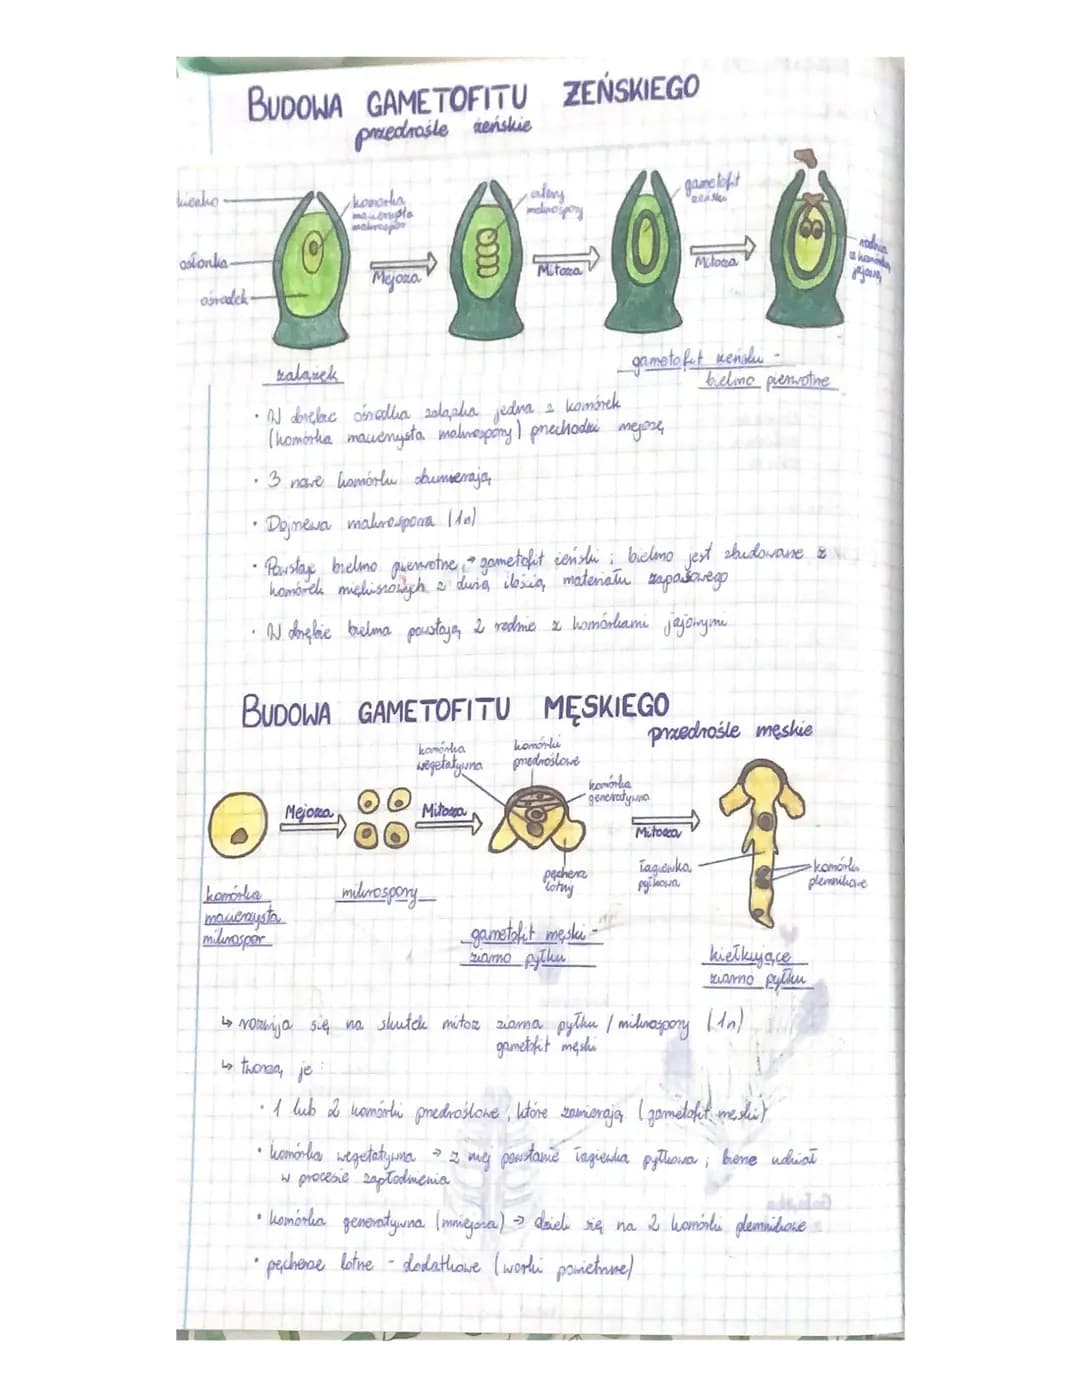 BUDOWA GAMETOFITU ŻEŃSKIEGO
przedrośle żeńskie
okienko
osłonka
ośrodek
komórka
macierzysta
makrospor
Mejoza
cztery
makrospory
Mitoza
gametofit
żeński
Mitoza
rodnia
z komórką
jajową
zalążek
gametofit żeński -
bielmo pierwotne
• W obrębie ośrodka zalążka jedna z komórek
(komórka macierzysta makrospory) przechodzi mejozę
• 3 nowe komórki obumierają
• Dojrzewa makrospora (1n)
• Powstaje bielmo pierwotne → gametofit żeński ; bielmo jest zbudowane z
komórek miękiszowych z dużą ilością materiału zapasowego
• W obrębie bielma powstają 2 rodnie z komórkami jajowymi
BUDOWA GAMETOFITU MĘSKIEGO
przedrośle męskie
Mejoza
Mitoza
komórka
wegetatywna
komórki
przedroślowe
komórka
generatywna
pęcherz
lotny
Mitoza
łagiewka
pyłkowa
komórki
plemnikowe
komórka
macierzysta
mikrospor
mikrospory
gametofit męski -
ziarno pyłku
kiełkujące
ziarno pyłku
↳ rozwija się na skutek mitoz ziarna pyłku / mikrospory (1n)
gametofit męski
↳ tworzą je :
• 1 lub 2 komórki przedroślowe, które zamierają (gametofit męski)
• komórka wegetatywna → z niej powstanie łagiewka pyłkowa ; bierze udział
w procesie zapłodnienia
• komórka generatywna (mniejsza) → dzieli się na 2 komórki plemnikowe
• pęcherze lotne - dodatkowe (worki powietrzne)